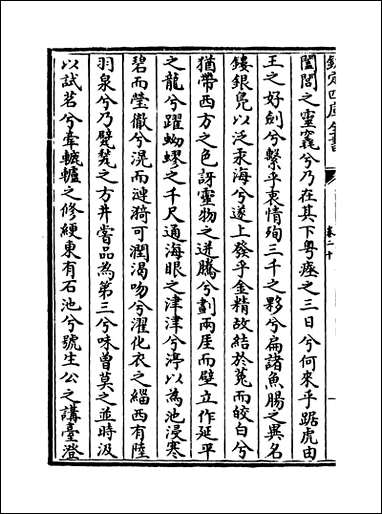 欽定四庫全書
卷二十
閶閭之靈竁兮乃在其下粤瘞之三日兮何來乎踞虎由
王之好劍兮繫乎衷情殉三千之夥兮扁諸魚腸之異名
鏤銀鳧以泛汞海兮遂上發乎金精故結於菟而皎白兮
猶帶西方之色訝靈物之迸騰兮劃兩厓而壁立作延平
之龍兮躍蜿蟉之千尺通海眼之津津兮渟以為池浸寒
碧而瑩徹兮滉而漣猗可潤渴吻兮濯化衣之緇西有陸
羽泉兮乃甃甃之方井嘗品為第三兮味曾莫之並時汲
以試茗兮牽轆轤之修綆東有石池兮號生公之講臺澄